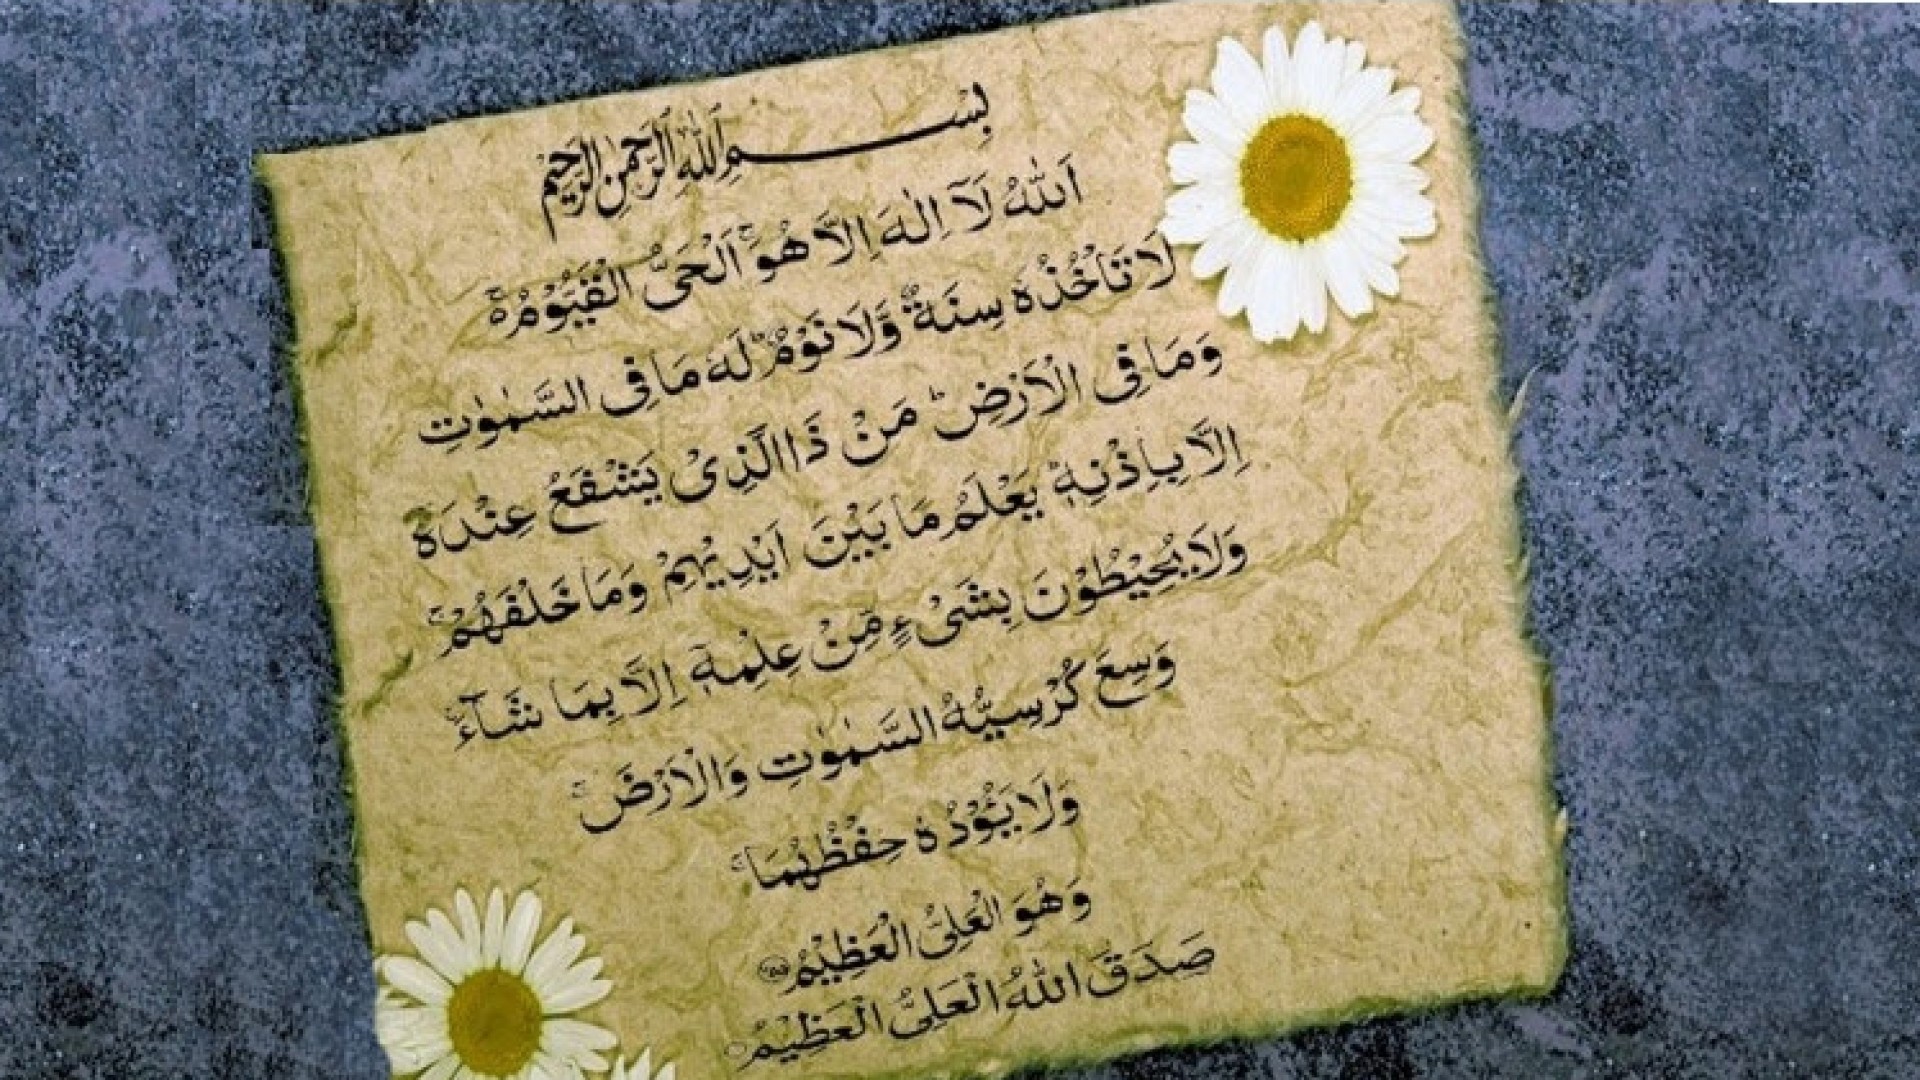 بِسْــــمِ اللّٰهِ الرَّحْمٰنِ الرَّحِيْمِ
اَللّٰهُ لَآ اِلٰهَ اِلَّا هُوَۚ اَلْحَيُّ الْقَيُّوْمُ ۚ
لَا تَاْخُذُهٗ سِنَةٌ وَّلَا نَوْمٌ ؕ لَهٗ مَا فِى السَّمٰوٰتِ
وَمَا فِى الْاَرْضِ ؕ مَنْ ذَا الَّذِىْ يَشْفَعُ عِنْدَهٗۤ
اِلَّا بِاِذْنِهٖ يَعْلَمُ مَا بَيْنَ اَيْدِيْهِمْ وَمَا خَلْفَهُمْ ۚ
وَلَا يُحِيْطُوْنَ بِشَىْءٍ مِّنْ عِلْمِهٖۤ اِلَّا بِمَا شَآءَ ۚ
وَسِعَ كُرْسِيُّهُ السَّمٰوٰتِ وَالْاَرْضَ ۚ
وَلَا يَئُوْدُهٗ حِفْظُهُمَا ۚ
وَهُوَ الْعَلِىُّ الْعَظِيْمُ ۝۲۵۵
صَدَقَ اللّٰهُ الْعَلِىُّ الْعَظِيْمُ